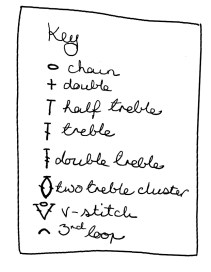 Key
chain
+ double
half treble
treble
double treble
two treble cluster
v-stitch
3rd loop